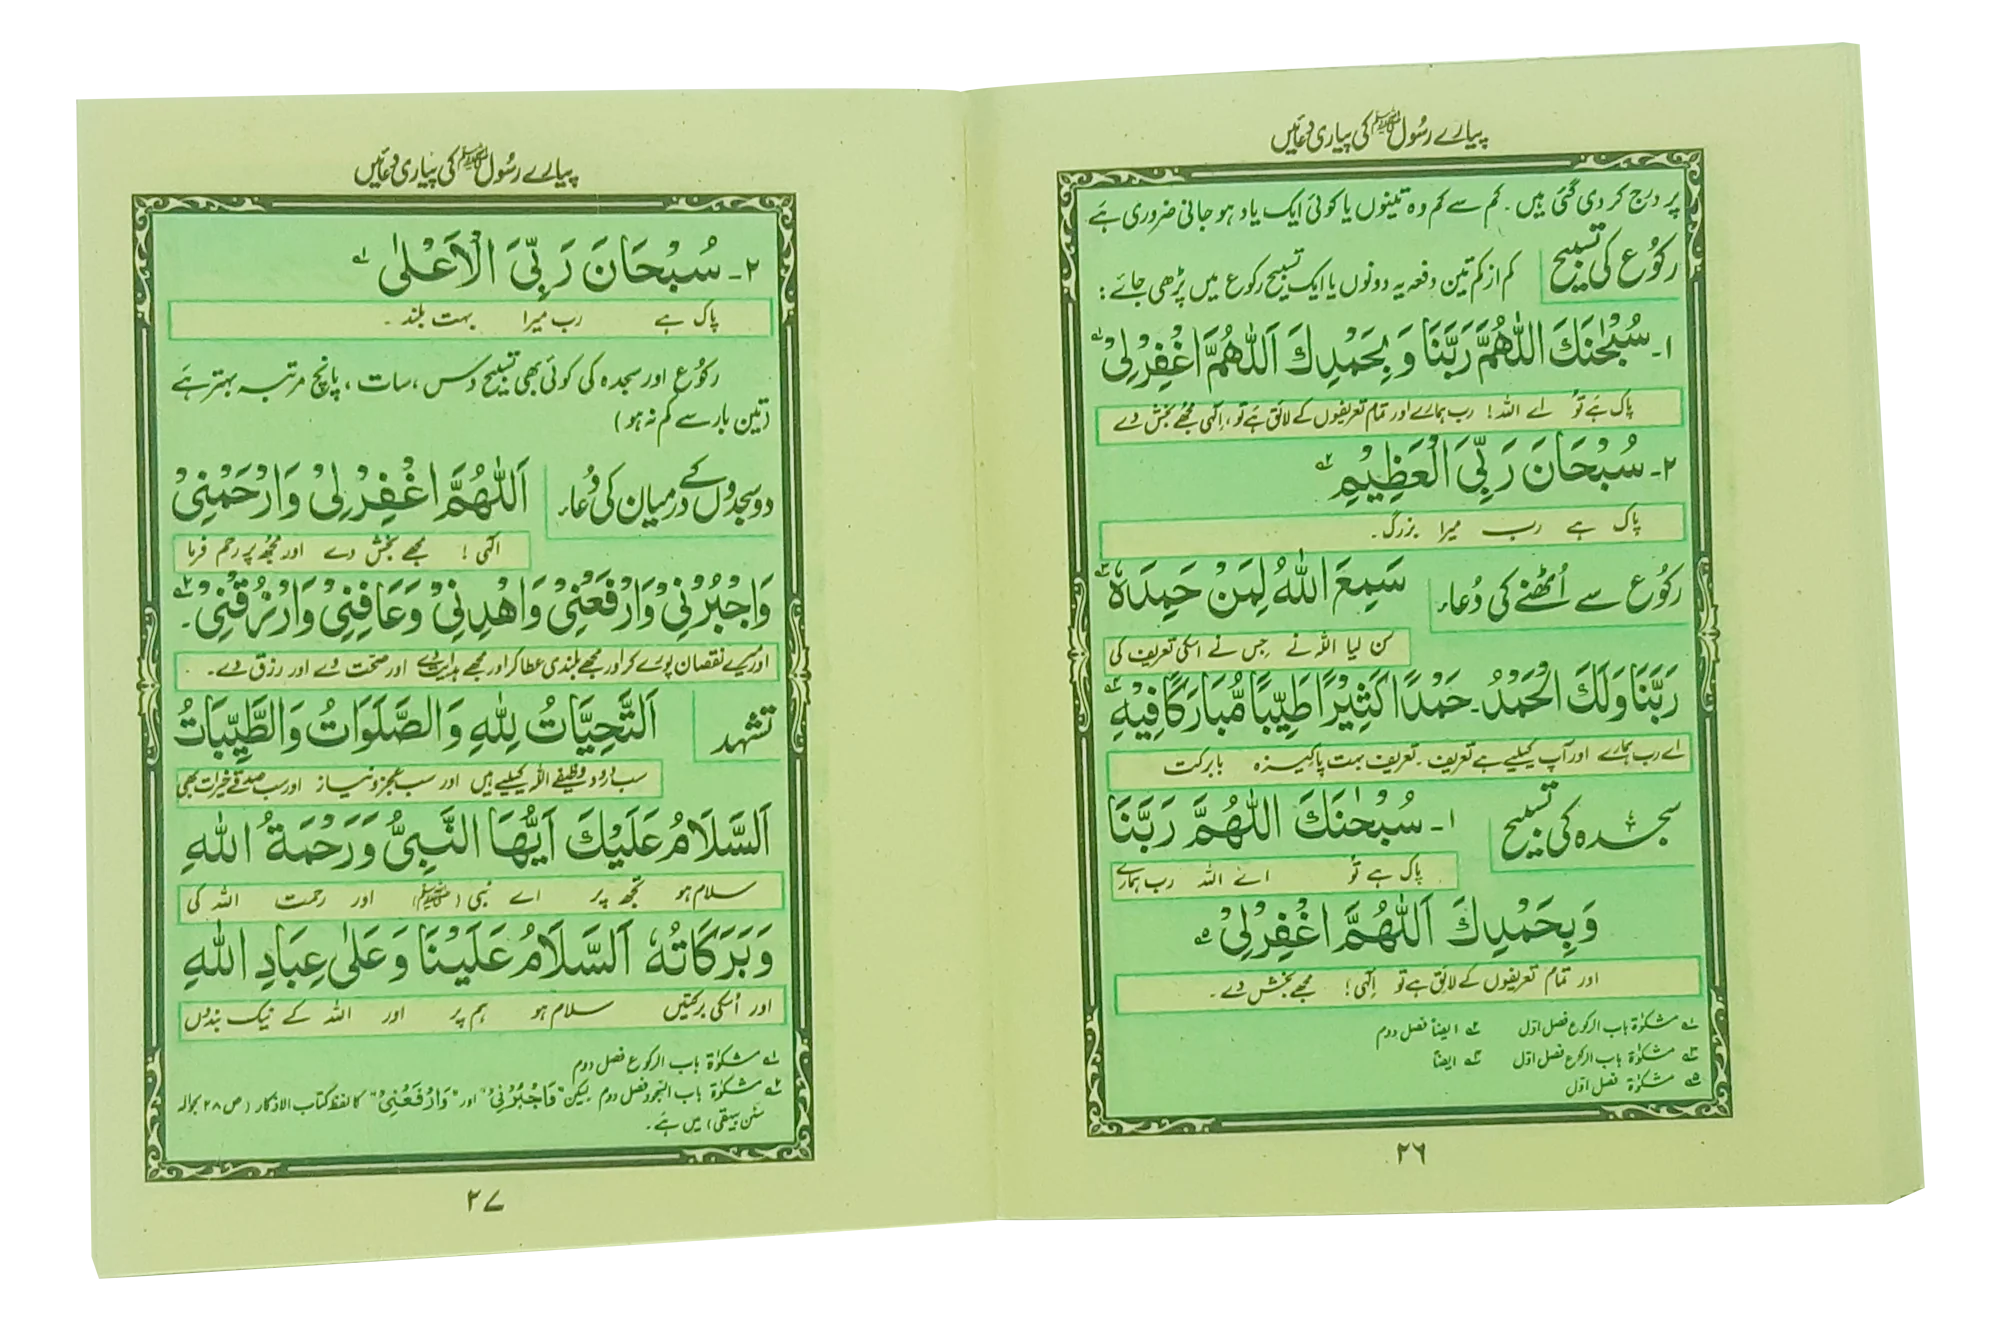 پیارے رسُول ﷺ کی پیاری دعائیں
پر درج کر دی گئی ہیں۔ کم سے کم وہ تینوں یا کوئی ایک یاد ہو جانی ضروری ہَے
رکوُع کی تسبیح
کم از کم تین دفعہ یہ دونوں یا ایک تسبیح رکوع میں پڑھی جائے :
۱۔ سُبْحٰنَكَ اللّٰهُمَّ رَبَّنَا وَ بِحَمْدِكَ اَللّٰهُمَّ اغْفِرْ لِیْ ؎۱
پاک ہَے تُو اے اللہ ! رب ہمارے اور تمام تعریفوں کے لائق ہَے تو ، الٰہی مجھے بخش دے
۲۔ سُبْحَانَ رَبِّیَ الْعَظِیْمِ ؎۲
پاک ہے رب میرا بزرگ۔
رکوُع سے اُٹھنے کی دُعاء
سَمِعَ اللّٰهُ لِمَنْ حَمِدَهٗ ؎۳
سن لیا اللہ نے جس نے اسکی تعریف کی
رَبَّنَا وَلَكَ الْحَمْدُ۔ حَمْدًا كَثِیْرًا طَیِّبًا مُّبَارَكًا فِیْهِ ؎۴
اے رب ہمارے اور آپ کیلیے ہے تعریف۔ تعریف بہت پاکیزہ بابرکت
سجدہ کی تسبیح
۱۔ سُبْحٰنَكَ اللّٰهُمَّ رَبَّنَا
پاک ہے تُو اے اللہ رب ہمارے
وَبِحَمْدِكَ اَللّٰهُمَّ اغْفِرْ لِیْ ؎۵
اور تمام تعریفوں کے لائق ہے تو الٰہی ! مجھے بخش دے۔
؎۱ مشکوٰۃ باب الرکوع فصل اوّل ؎۲ ایضاً فصل دوم
؎۳ مشکوٰۃ باب الرکوع فصل اوّل ؎۴ ایضاً
؎۵ مشکوٰۃ فصل اوّل
۲۶
پیارے رسُول ﷺ کی پیاری دعائیں
۲۔ سُبْحَانَ رَبِّیَ الْاَعْلیٰ ؎۱
پاک ہے رب میرا بہت بلند۔
رکوُع اور سجدہ کی کوئی بھی تسبیح دس ، سات ، پانچ مرتبہ بہتر ہَے
(تین بار سے کم نہ ہو)
دو سجدوں کے درمیان کی دُعاء
اَللّٰهُمَّ اغْفِرْ لِیْ وَارْحَمْنِیْ
الٰہی ! مجھے بخش دے اور مجھ پر رحم فرما
وَاجْبُرْنِیْ وَارْفَعْنِیْ وَاهْدِنِیْ وَعَافِنِیْ وَارْزُقْنِیْ۔ ؎۲
اور میرے نقصان پورے کر اور مجھے بلندی عطا کر اور مجھے ہدایت دے اور صحت دے اور رزق دے۔
تشہد
اَلتَّحِیَّاتُ لِلّٰهِ وَالصَّلَوَاتُ وَالطَّیِّبَاتُ
سب درود وظیفے اللہ کیلیے ہیں اور سب عجز و نیاز اور سب صدقے خیرات بھی
اَلسَّلَامُ عَلَیْكَ اَیُّهَا النَّبِیُّ وَرَحْمَةُ اللّٰهِ
سلام ہو تجھ پر اے نبی (ﷺ) اور رحمت اللہ کی
وَبَرَكَاتُهٗ اَلسَّلَامُ عَلَیْنَا وَعَلیٰ عِبَادِ اللّٰهِ
اور اُسکی برکتیں سلام ہو ہم پر اور اللہ کے نیک بندوں
؎۱ مشکوٰۃ باب الرکوع فصل دوم
؎۲ مشکوٰۃ باب السجود فصل دوم لیکن "وَاجْبُرْنِیْ" اور "وَارْفَعْنِیْ" کا لفظ کتاب الاذکار (ص ۲۸ بحوالہ
سنن بیہقی) میں ہَے۔
۲۷